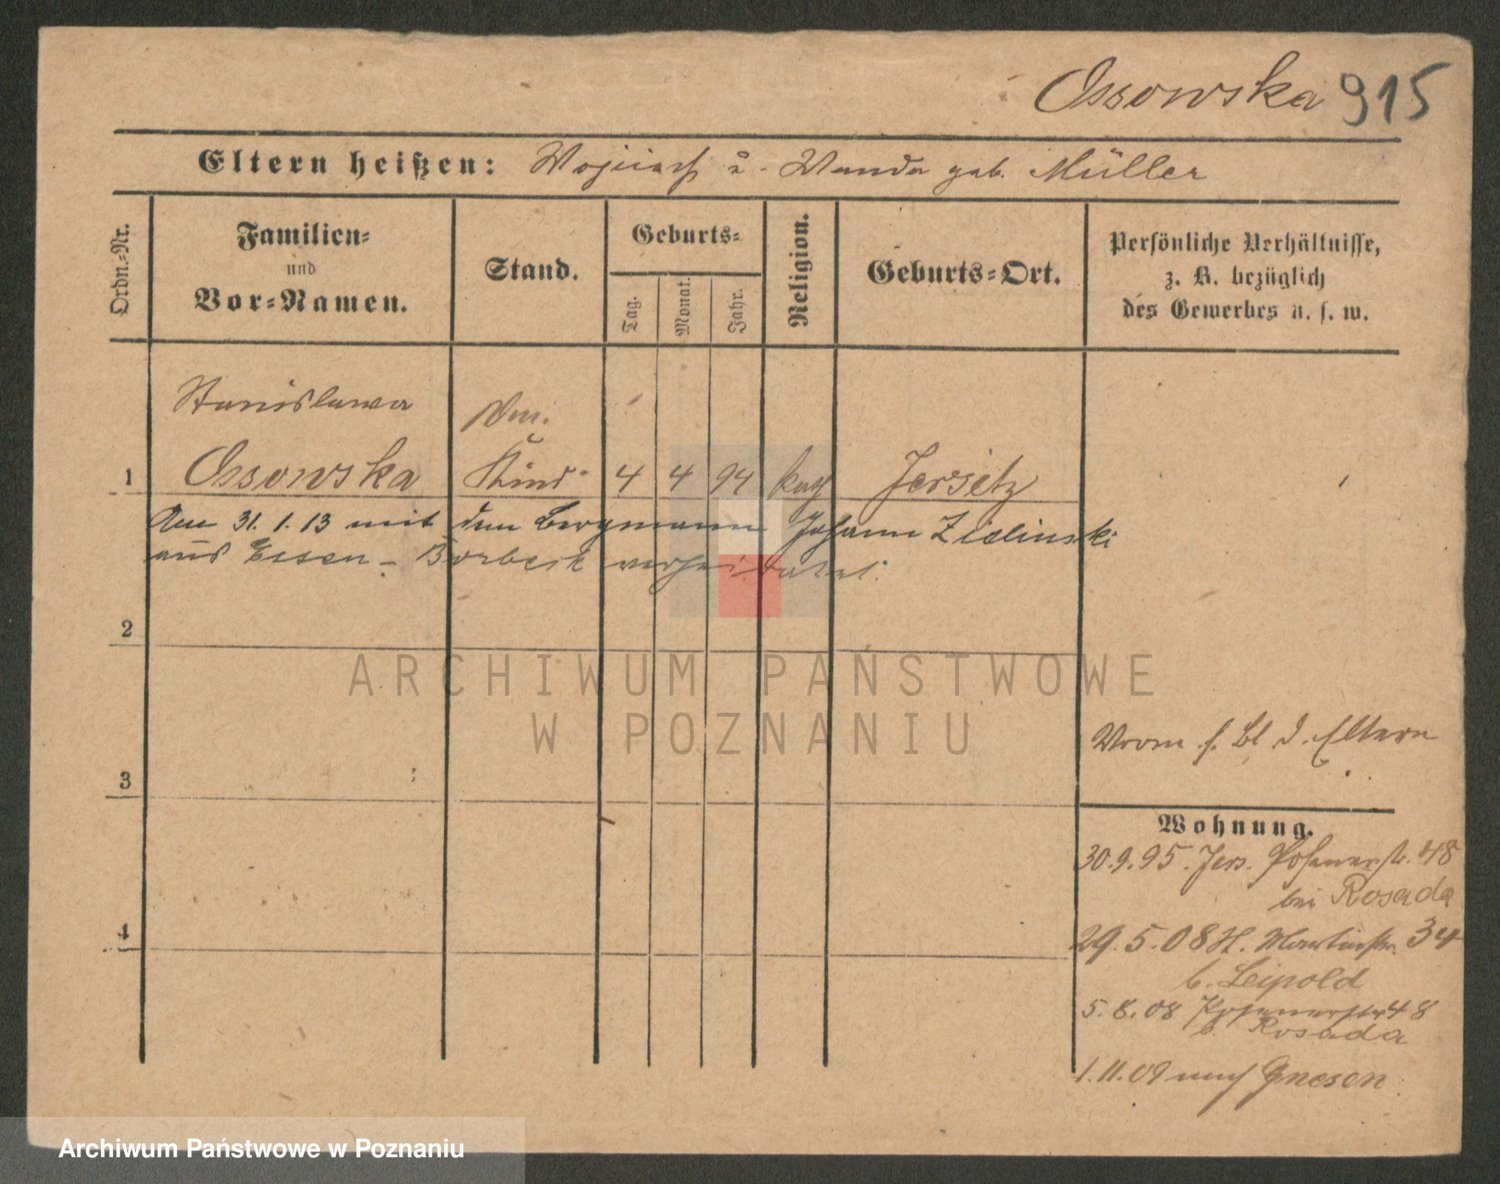 Ossowska 915
Eltern heißen: Wojciech u. Wanda geb. Müller
Ordn.-Nr.
Familien-
und
Vor-Namen.
Stand.
Geburts-
Tag.
Monat.
Jahr.
Religion.
Geburts-Ort.
Persönliche Verhältnisse,
z. B. bezüglich
des Gewerbes u. s. w.
Stanislawa
1 Ossowska Kind 4 4 94 kath Jersitz
Am 31.1.13 mit dem Bergmann Johann Zielinski
aus Essen-Borbeck verheiratet.
2
3
4
Vorm s. Bl d. Eltern
Wohnung.
30.9.95. Jers. Posenerstr. 48
bei Rosada
29.5.08 H. Martinstr. 34
b. Leipold
5.8.08 Posenerstr 48
b. Rosada
1.11.09 nach Gnesen
ARCHIWUM PAŃSTWOWE
W POZNANIU
Archiwum Państwowe w Poznaniu